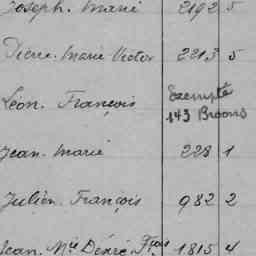 Joseph. Marie 2192 5
Pierre. Marie Victor 2213 5
Léon. François Exempté
143 Broons
Jean. Marie 228 1
Julien. François 982 2
Jean. Mie Désiré Fçois 1815 4